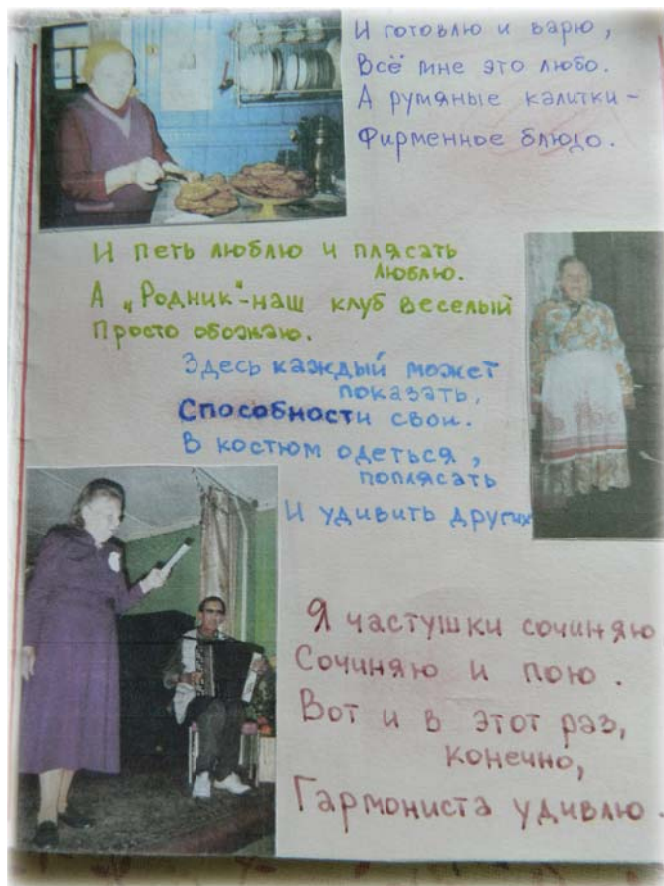 И готовлю и варю,
Всё мне это любо.
А румяные калитки-
Фирменное блюдо.
И петь люблю и плясать
люблю.
А „Родник"-наш клуб веселый
Просто обожаю.
Здесь каждый может
показать,
Способности свои.
В костюм одеться,
поплясать
И удивить других
Я частушки сочиняю
Сочиняю и пою.
Вот и в этот раз,
конечно,
Гармониста удивлю.